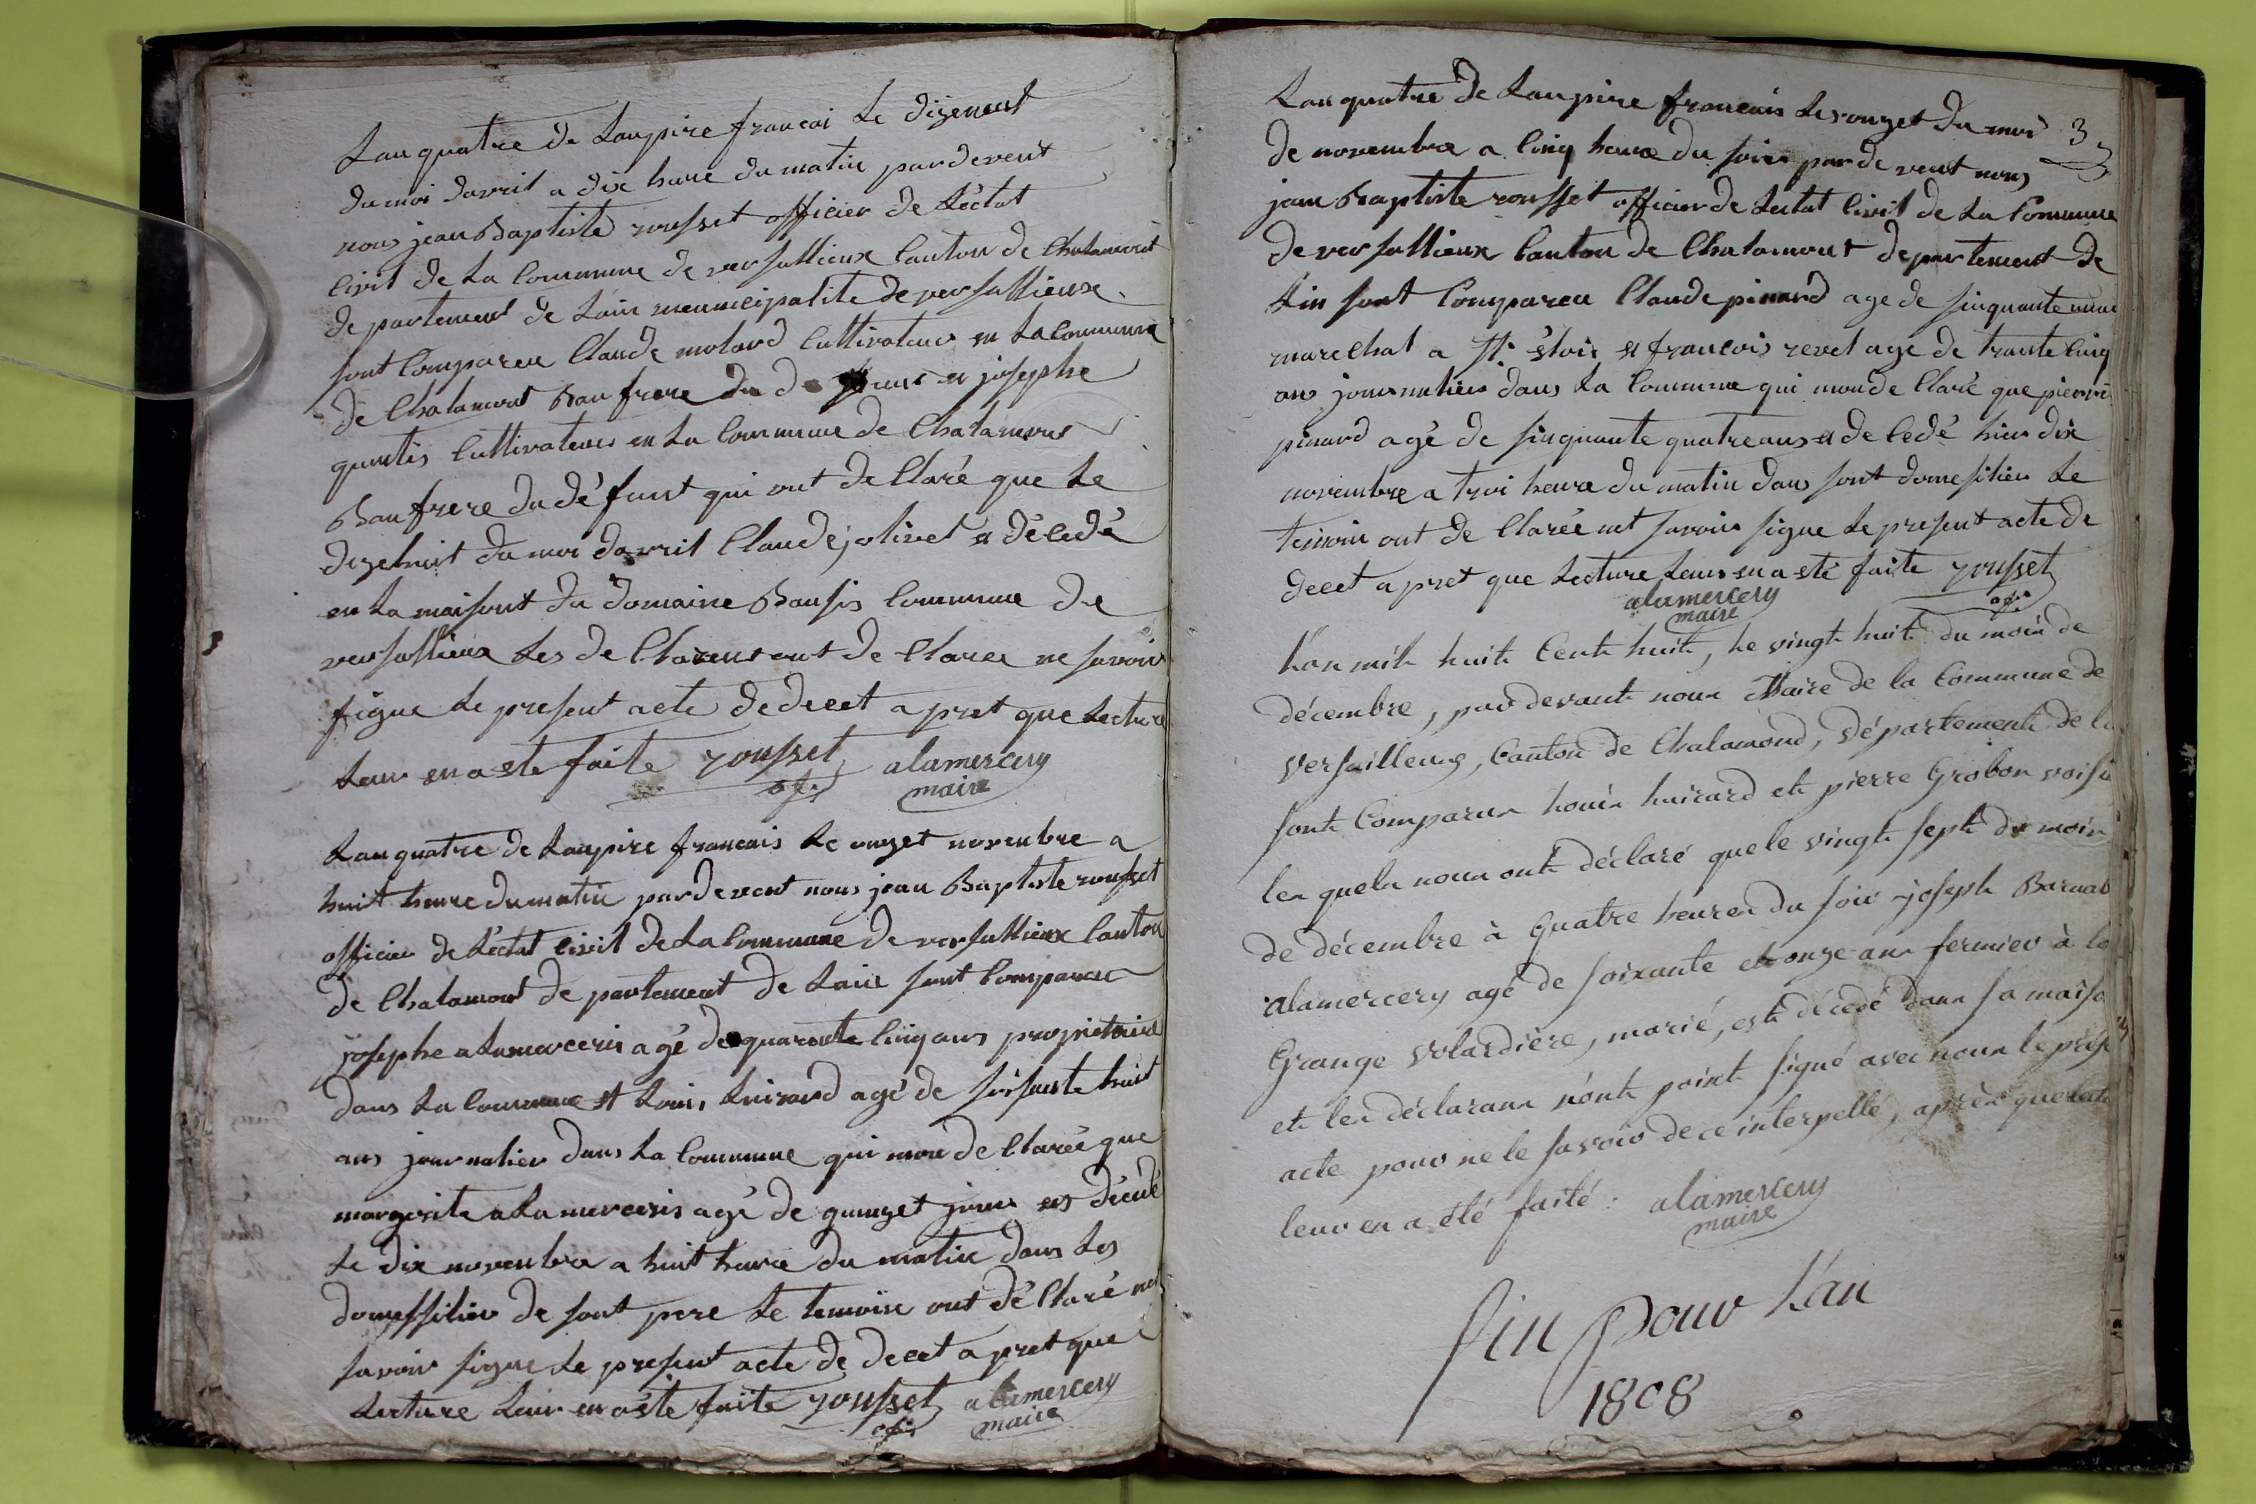 Lan quatre de Lanpire francai Le dizeneuf
du moi davril a dix hure du matin pardevent
nous jean Baptiste rousset officier de Léctat
civil de La Commune de versallieux Canton de Chatamont
departement de Lain meunicipalite de versallieux
sont Compareu Claude molard Cultivateur en La Commune
de Chalamont Bau frere du defunt et josephe
Cultivateur en La Commune de Chatamont
Bau frere du défunt qui ont de Claré que Le
dizehuit du moi davril Claude jolivet et décedé
en La maisont du domaine Commune de
versallieux Les de Clarent ont de Claree ne savoir
signe Le present acte de decet a pret que Lecture
Leur en a ete faite rousset alamercery
ofi maire
Lan quatre de Lanpire francais Le onzet novembre a
huit heure du matin pardevent nous jean Baptiste rousset
officier de Léctat civil de La Commune de versallieux Canton
de Chatamont de partement de Lain sont Compareu
josephe alamerceris agé de quarente Cinq ans propriétaire
dans La Commune et Louis Luirard agé de soisante huit
ans journalier dans La Commune qui mon de Claree que
margerite alamerceris agé de quinzet jours est décedé
Le dix novembre a huit heure du matin dans Les
domessilier de sont pere Le temoin ont dé Claré
savoir signe Le present acte de decet a pret que
Lecture Leur en a ete faite rousset alamercery
ofi maire
Lan quatre de Lanpire francais Les onzet du moi 3
de novembre a Cinq heure du soire par de vent nous
jean Baptiste rousset officier de Lectat Civil de La Commune
de versallieux Canton de Chatamont departement de
Lin sont Compareu Claude pinard age de sinquante
marechal a St éloir et francois revel age de trante Cinq
ans journalier dans La Commune qui mon de Claré que pierre
pinard agé de sinquante quatre ans et de Cedé hier dix
novembre a troi heure du matin dans sont domesilier Le
temoin ont de Clarée net savoir signe Le present acte de
decet a pret que Lecture Leur en a eté faite rousset
alamercery ofi
maire
L'an mil huit Cent huit, le vingt huit du mois de
décembre, par devant nous Maire de la Commune de
Versailleux, Canton de Chalamond, département de l
sont Comparus louis luirard et pierre Grobon
les quels nous ont déclaré que le vingt sept du mois
de décembre à quatre heures du soir joseph Barnab
alamercery agé de soixante et onze ans fermier à la
Grange Volardière, marié, est décedé dans sa maiso
et les déclarans n'ont point signé avec nous le prése
acte pour ne le savoir de ce interpellé, après que lect
leur en a été faité : alamercery
maire
fin pour L'an
1808